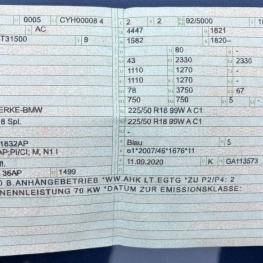 0005 CYH00008 4 2 2 92/5000
AC 4447 1821
T31500 9 1582 1820–
80 -
43 2330
1110 1270 -
1110 1270 -
78 3750 67
750 750 5 -
ERKE-BMW 225/50 R18 99W A C1
8 Spl. 225/50 R18 99W A C1
-
1832AP Blau 5
AP;PI/CI; M, N1 I e1*2007/46*1676*11
36AP 11.09.2020 K GA113573
0 B.ANHÄNGEBETRIEB *WW.AHK LT.EGTG *ZU P2/P4: 2
NENNLEISTUNG 70 KW *DATUM ZUR EMISSIONSKLASSE: